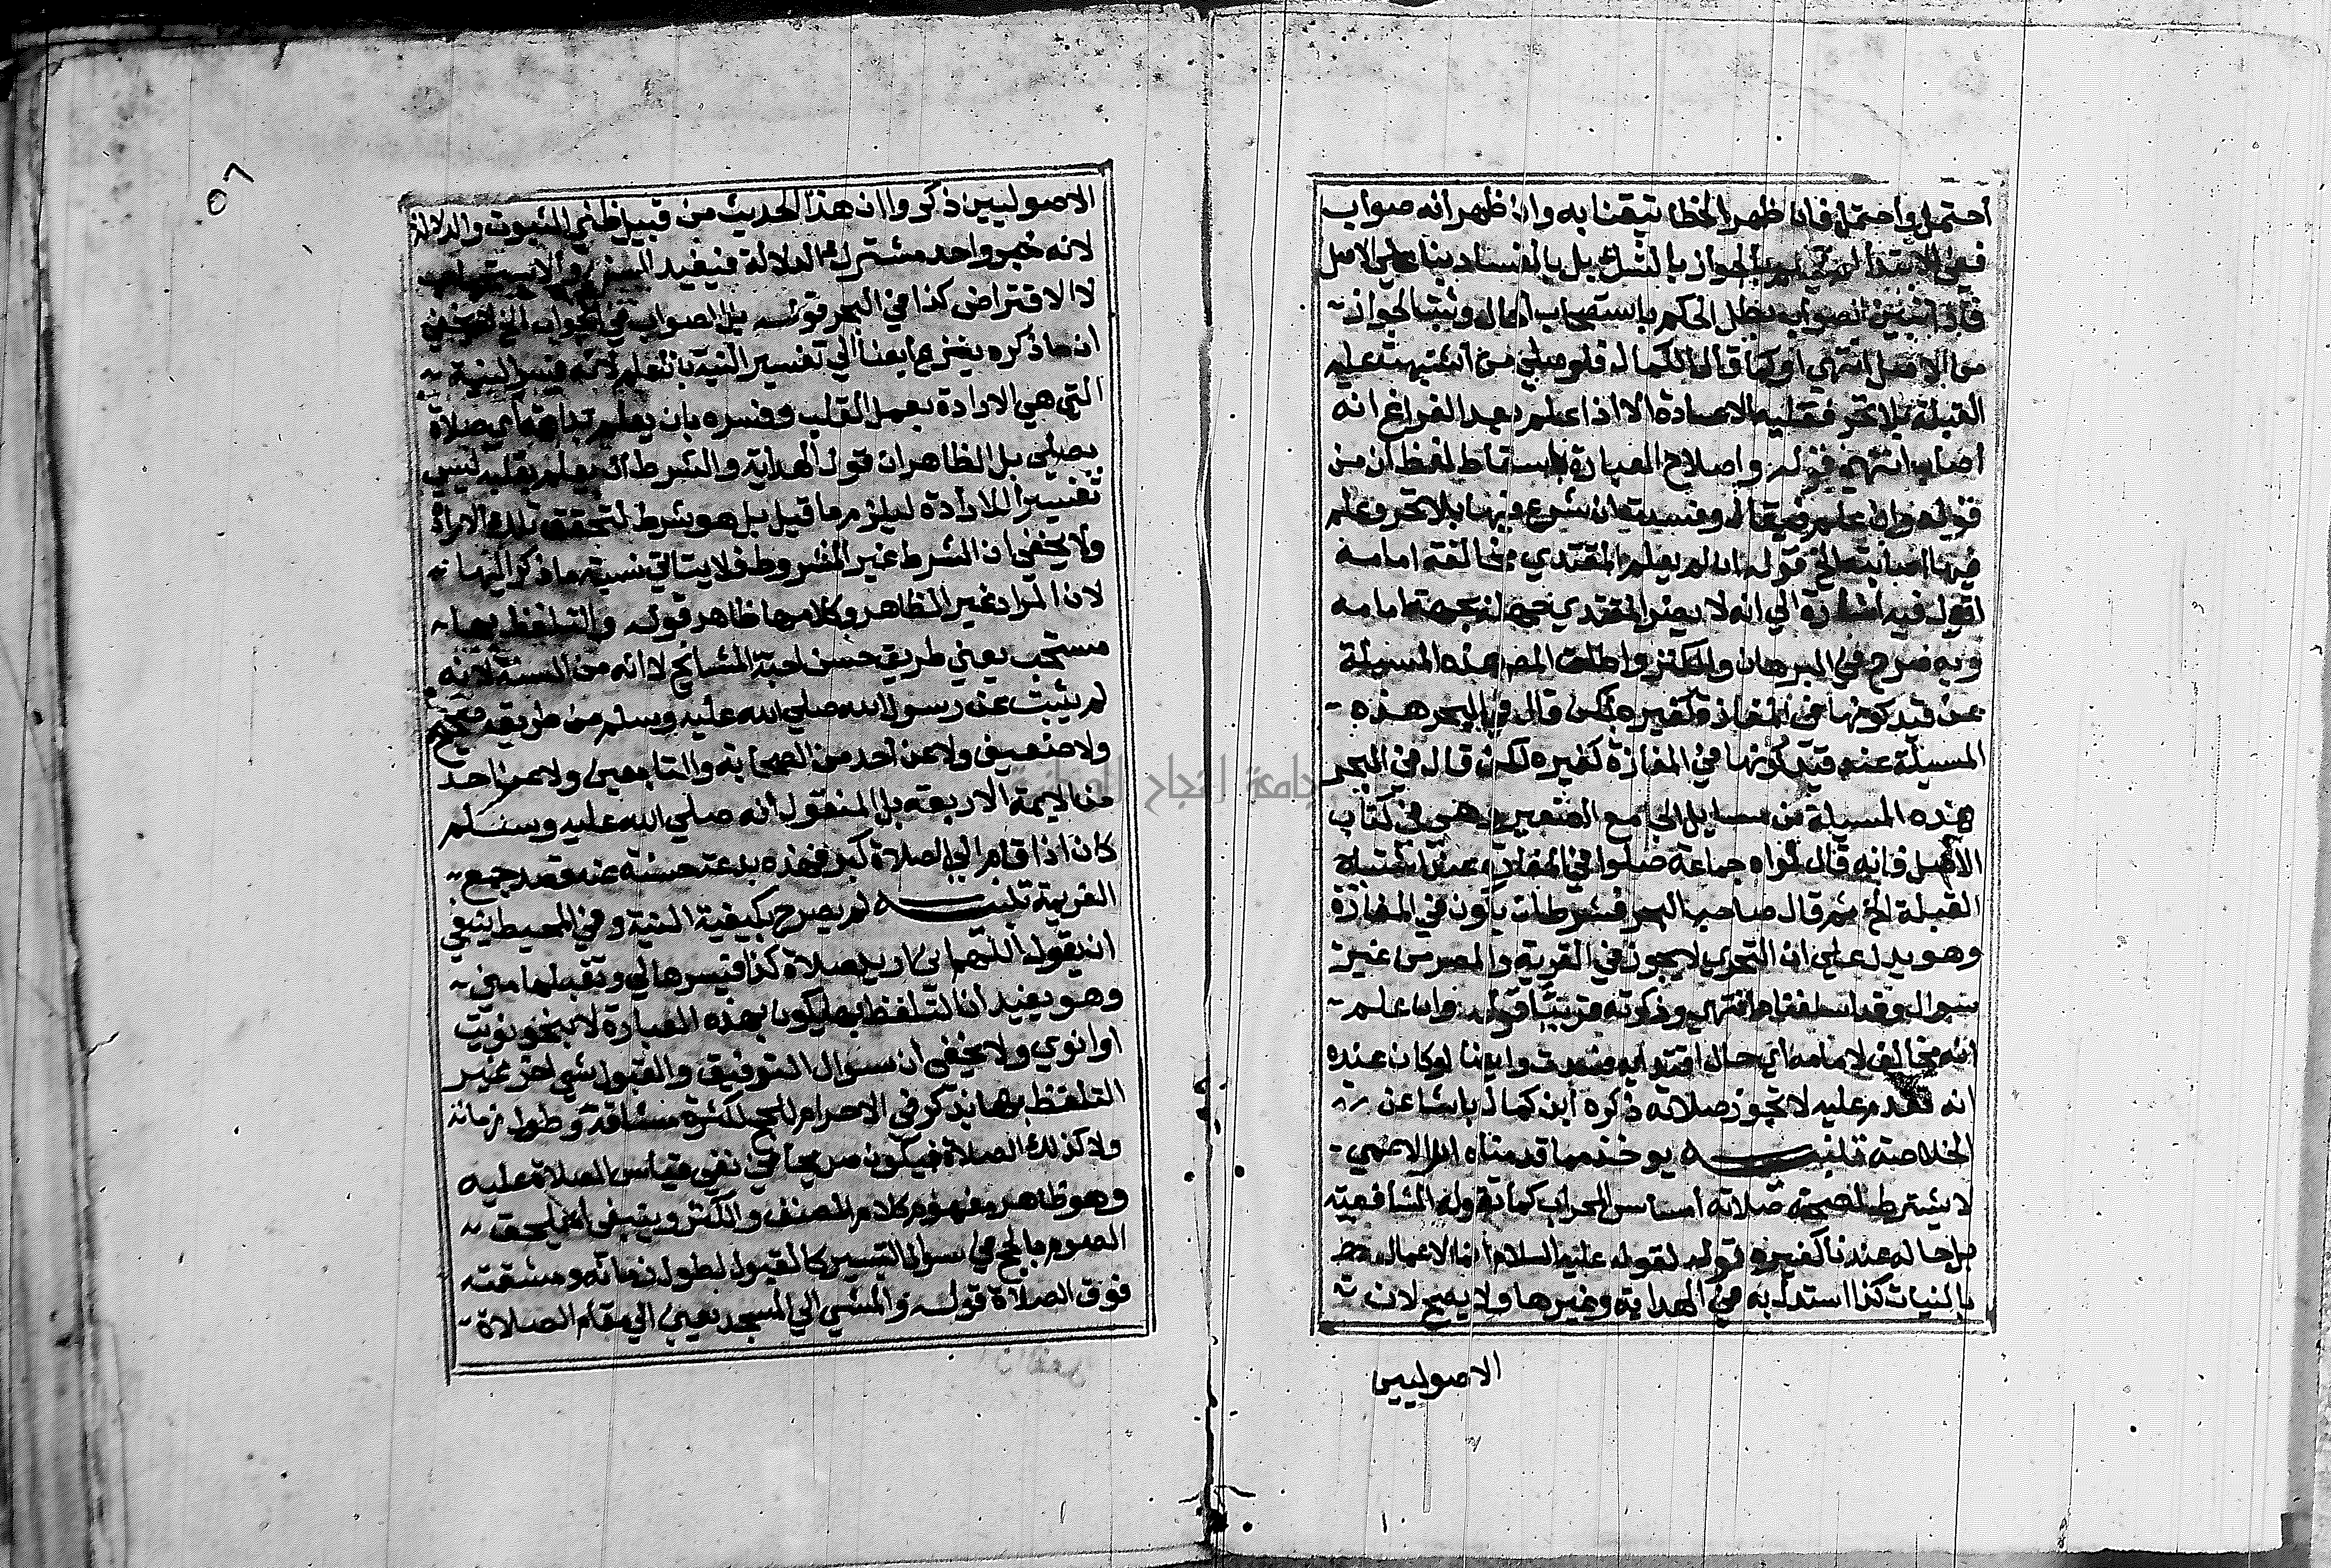 احتمل واحتمل فان ظهر الخطا تيقنا به وان ظهر انه صواب
ففي الابتدا لم بالجواز بالشك بل بالفساد بنا علي الاصل
فاذا تبين الصواب بطل الحكم باستصحاب الحال وثبت الجواز
من الاصل انتهي او كما قال الكمال فلو صلي من اشتبهت عليه
القبلة بلا تحر فعليه الاعادة الا اذا علم بعد الفراغ انه
اصاب انتهي قوله واصلاح العبارة باسقاط لفظ ان من
قوله وان علم فيقال وفسدت ان شرع فيها بلا تحر وعلم
فيها اصابته الخ قوله ان لم يعلم المقتدي مخالفته امامه
اقول فيه اشارة الي انه لا يضر المقتدي جهله بجهة امامه
وبه صرح في البرهان والكنز واطلق المص هذه المسيلة
عن قيد كونها في المفازة كغيره لكن قال في البحر هذه
المسيلة عن قيد كونها في المفازة كغيره لكن قال في البحر
هذه المسيلة من مسايل الجامع الصغير وهي في كتاب
الاصل فانه قال لو ان جماعة صلوا في المفازة عند اشتباه
القبلة الخ ثم قال صاحب البحر فشرط ان يكون في المفازة
وهو يدل علي ان التحري لا يجوز في القرية والمصر من غير
سوال وقد اسلفناه انتهي وذكرته قريبا قوله وان علم
انه مخالف لامامه اي حال اقتدايه فسدت وايضا لو كان عنده
انه تقدم عليه لا تجوز صلاته ذكره ابن كمال باشا عن
الخلاصة تنبيه يوخذ مما قدمناه ان الاعمي
لا يشترط لصحة صلاته امساس المحراب كما تقوله الشافعية
بل حاله عندنا كغيره قوله لقوله عليه السلام انما الاعمال
بالنيات كذا استدل به في الهداية وغيرها ولا يصح لان
الاصوليين
٥٦
الاصوليين ذكروا ان هذا الحديث من قبيل ظني الثبوت والدلالة
لانه خبر واحد مشترك الدلالة فيفيد السنية والاستحباب
لا الافتراض كذا في البحر قوله بل الصواب في الجواب الخ لا يخفي
ان ما ذكره يفزع ايضا الي تفسير النية بالعلم لانه فسر النية
التي هي الارادة بعمل القلب وفسره بان يعلم بداهة اي صلاة
يصلي بل الظاهر ان قول الهداية والشرط ان يعلم بقلبه ليس
تفسير الارادة ليلزم ما قيل بل هو شرط لتحقق تلك الارادة
ولا يخفي ان الشرط غير المشروط فلا يتاتي نسبة ما ذكر اليها
لان المراد غير الظاهر وكلامها ظاهر قوله والتلفظ بها
مستحب يعني طريق حسن احبه المشايخ لا انه من السنة لانه
لم يثبت عن رسول الله صلي الله عليه وسلم من طريق صحيح
ولا ضعيف ولا عن احد من الصحابة والتابعين ولا عن احد
من الايمة الاربعة بل المنقول انه صلي الله عليه وسلم
كان اذا قام الي الصلاة كبر فهذه بدعة حسنة عند قصد جمع
العزيمة تنبيه لم يصرح بكيفية النية وفي المحيط ينبغي
ان يقول اللهم اني اريد صلاة كذا فيسرها لي وتقبلها مني
وهو يفيد ان التلفظ بها يكون بهذه العبارة لا بنحو نويت
او انوي ولا يخفي ان سوال التوفيق والقبول شي اخر غير
التلفظ بها يذكر في الاحرام للحج لكثرة مشاقة وطول زمانه
ولا كذلك الصلاة فيكون صريحا في نفي قياس الصلاة عليه
وهو ظاهر مفهوم كلام المصنف والكنز وينبغي ان يلحق
الصوم بالحج في سوال التيسير كالقبول لطول زمانه ومشقته
فوق الصلاة قوله والمشي الي المسجد يعني الي مقام الصلاة